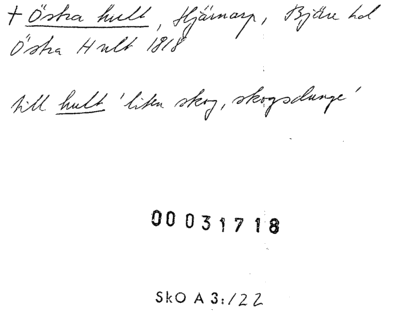 + Östra hult, Hjärnarp, Bjäre hd
Östra Hult 1818
till hult 'liten skog, skogsdunge'
00 031718
SkO A 3:122